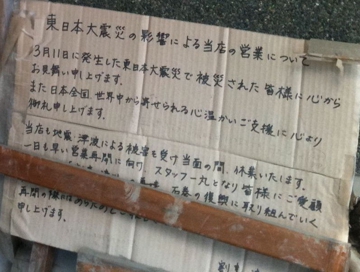 東日本大震災の影響による当店の営業について
3月11日に発生した東日本大震災で被災された皆様に心から
お見舞い申し上げます。
また日本全国 世界中から寄せられる心温かいご支援に心より
御礼申し上げます。
当店も地震・津波による被害を受け当面の間、休業いたします。
一日も早い営業再開に向け、スタッフ一丸となり皆様にご愛顧
石巻の復興に取り組んでいく
再開の際は
申し上げます。